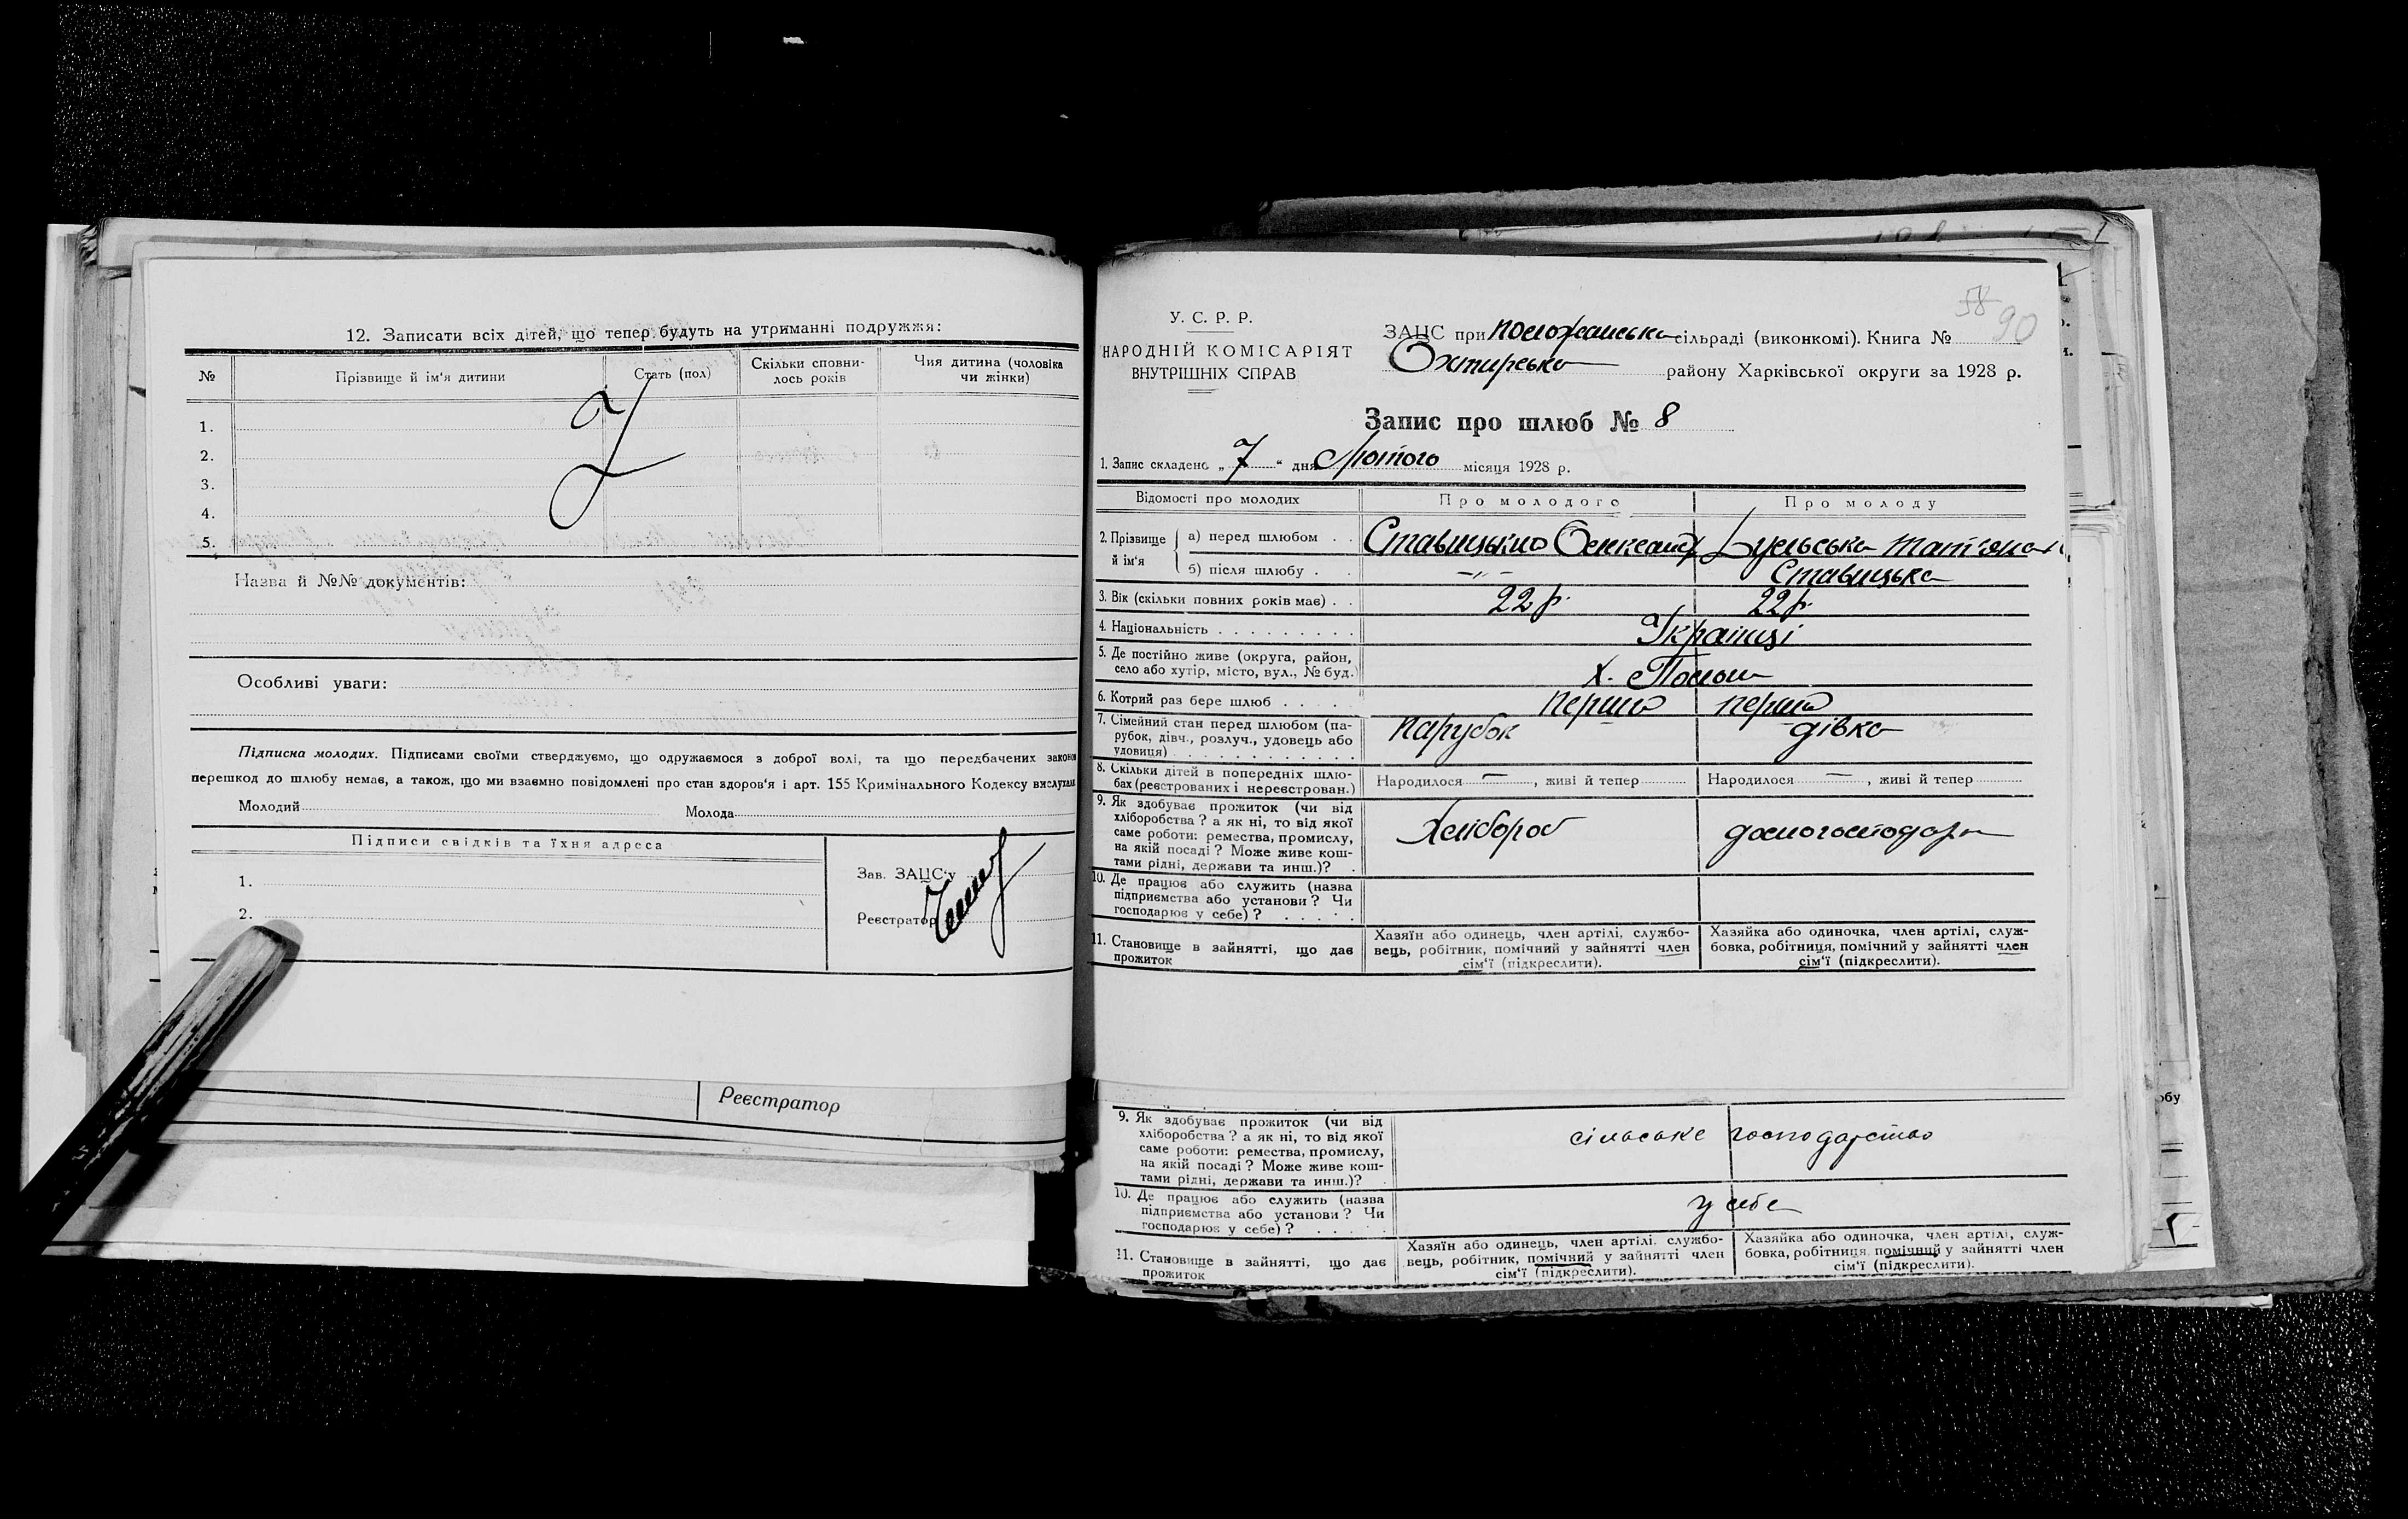 12. Записати всіх дітей, що тепер будуть на утриманні подружжя:
№ Прізвище й ім'я дитини Стать (пол) Скільки сповни-лось років Чия дитина (чоловіка чи жінки)
1.
2.
3.
4.
5.
Назва й №№ документів:
Особливі уваги:
Підписка молодих. Підписами своїми стверджуємо, що одружаємося з доброї волі, та що передбачених законом
перешкод до шлюбу немає, а також, що ми взаємно повідомлені про стан здоров'я і арт. 155 Кримінального Кодексу вислухали
Молодий Молода
Підписи свідків та їхня адреса
1.
2.
Зав. ЗАЦС'у
Реєстратор
Реєстратор
У. С. Р. Р.
НАРОДНІЙ КОМІСАРІЯТ
ВНУТРІШНІХ СПРАВ
58 90
ЗАЦС при сільраді (виконкомі). Книга №
Охтирсько району Харківської округи за 1928 р.
Запис про шлюб № 8
1. Запис складено „ 7 “ дня Лютого місяця 1928 р.
Відомості про молодих Про молодого Про молоду
2. Прізвище й ім'я
а) перед шлюбом . . Ставицький Олександр Тат'яна
б) після шлюбу . . —"— Ставицька
3. Вік (скільки повних років має) . . 22 р. 22 р.
4. Національність . . . . . . . . . Українці
5. Де постійно живе (округа, район,
село або хутір, місто, вул., № буд.) х.
6. Котрий раз бере шлюб . . . . . перший перший
7. Сімейний стан перед шлюбом (па-
рубок, дівч., розлуч., удовець або
удовиця) . . . . . . . . . . . парубок дівка
8. Скільки дітей в попередніх шлю-
бах (реєстрованих і нереєстрован.) Народилося — , живі й тепер Народилося — , живі й тепер
9. Як здобуває прожиток (чи від
хліборобства? а як ні, то від якої
саме роботи: ремества, промислу,
на якій посаді? Може живе кош-
тами рідні, держави та инш.)? . Хлібороб домогосподарк
10. Де працює або служить (назва
підприємства або установи? Чи
господарює у себе)? . . . . .
11. Становище в зайнятті, що дає
прожиток
Хазяїн або одинець, член артілі, службо-
вець, робітник, помічний у зайнятті член
сім'ї (підкреслити).
Хазяйка або одиночка, член артілі, служ-
бовка, робітниця, помічний у зайнятті член
сім'ї (підкреслити).
9. Як здобуває прожиток (чи від
хліборобства? а як ні, то від якої
саме роботи: ремества, промислу,
на якій посаді? Може живе кош-
тами рідні, держави та инш.)? . сільське господарство
10. Де працює або служить (назва
підприємства або установи? Чи
господарює у себе)? . . . . . у себе
11. Становище в зайнятті, що дає
прожиток
Хазяїн або одинець, член артілі, службо-
вець, робітник, помічний у зайнятті член
сім'ї (підкреслити).
Хазяйка або одиночка, член артілі, служ-
бовка, робітниця, помічний у зайнятті член
сім'ї (підкреслити).